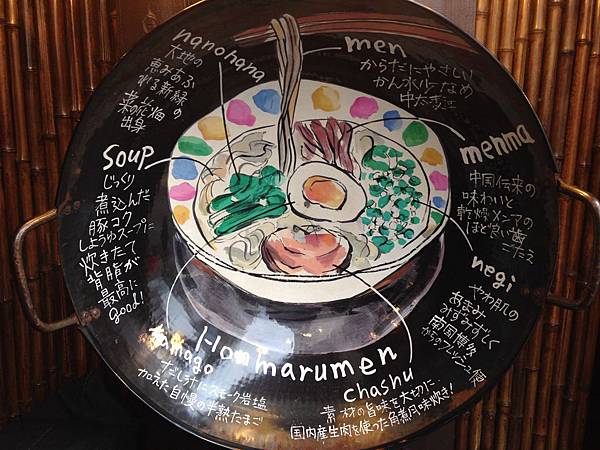 nanohana
大地の
恵みあふ
れる新緑
菜の花畑の
出身
men
からだにやさしい
かん水少なめ
中太麺
menma
中国伝来の
味わいと
乾燥メンマの
ほど良い歯
ごたえ
negi
やわ肌の
あまみ
みずみずしく
南国博多
からのフレッシュ
Soup
じっくり
煮込んだ
豚コク
しょうゆスープに
炊きたて
背脂が
最高に
good!
tamago
だし汁にスモーク岩塩
加えた自慢の半熟たまご
marumen
chashu
素材の旨味を大切に
国内産生肉を使った角煮風味炊き!